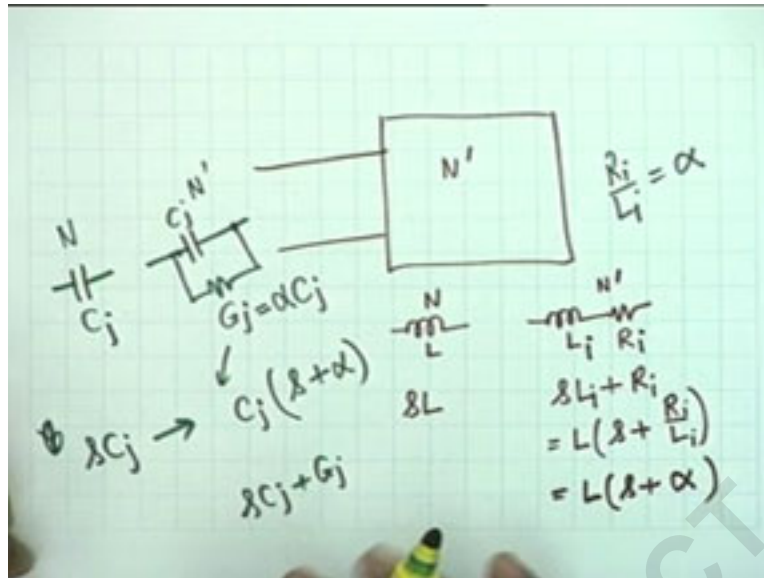 N'
Ri/Li = α
N
Cj
N'
Cj
Gj = αCj
N
L
N'
Li Ri
sCj → Cj(s+α)
sCj+Gj
sL
sLi + Ri
= L(s + Ri/Li)
= L(s + α)
CT